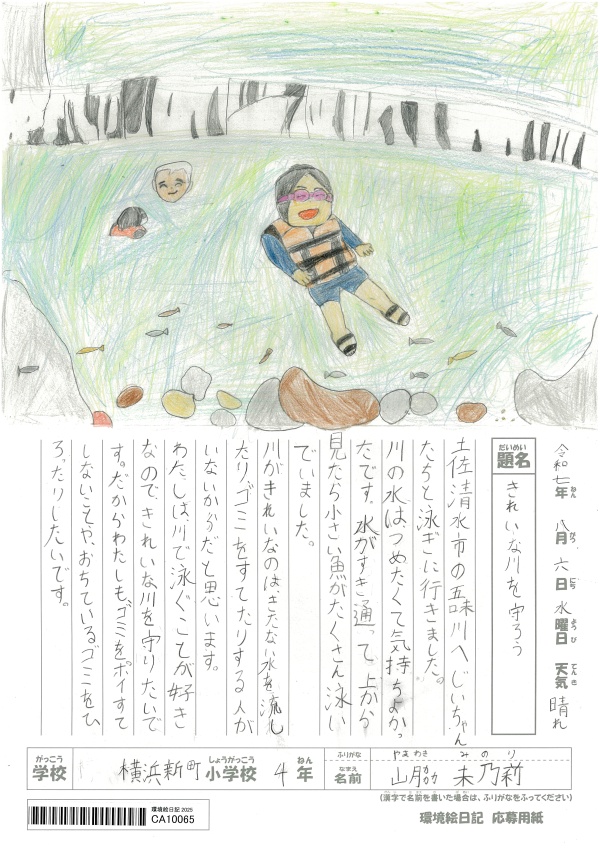 令和七年 八月 六日 水曜日 天気 晴れ
ねん がつ にち ようび てんき
だいめい
題名 きれいな川を守ろう
土佐清水市の五味川へじいちゃん
たちと泳ぎに行きました。
川の水はつめたくて気持ちよかっ
たです。水がすき通って、上から
見たら小さい魚がたくさん泳い
でいました。
川がきれいなのは、きたない水を流し
たり、ゴミをすてたりする人が
いないからだと思います。
わたしは、川で泳ぐことが好き
なので、きれいな川を守りたいで
す。だからわたしも、ゴミをポイすて
しないことや、おちているゴミをひ
ろったりしたいです。
がっこう しょうがっこう ねん
学校 横浜新町 小学校 4年
ふりがな やまわき みのり
なまえ
名前 山脇 未乃莉
(漢字で名前を書いた場合は、ふりがなをふってください)
環境絵日記 2025
CA10065
環境絵日記 応募用紙